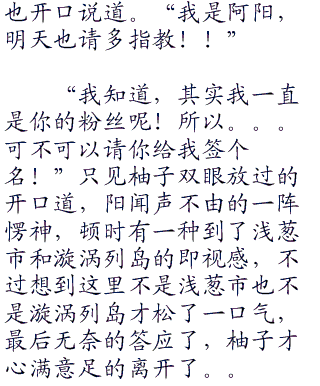 也开口说道。“我是阿阳，
明天也请多指教！！”
“我知道，其实我一直
是你的粉丝呢！所以。。。
可不可以请你给我签个
名！”只见柚子双眼放过的
开口道，阳闻声不由的一阵
愣神，顿时有一种到了浅葱
市和漩涡列岛的即视感，不
过想到这里不是浅葱市也不
是漩涡列岛才松了一口气，
最后无奈的答应了，柚子才
心满意足的离开了。。